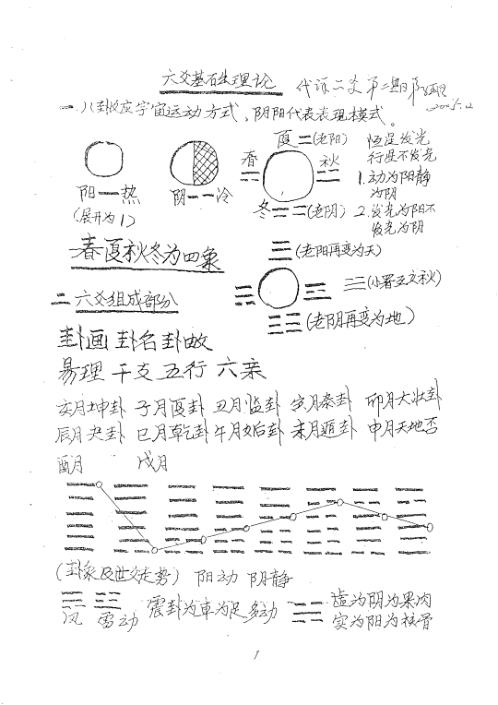 六爻基石生理论
一、八卦故应宇宙运动方式、阴阳代表表现模式。
夏 (老阳) 恒星发光
春 秋 行星不发光
阳一热 阴一一冷
1.动为阳静
为阴
(展开为1)
冬 (老阴) 2.发光为阳不
发光为阴
(老阳再变为天)
春夏秋冬为四象
二、六爻组成部分
(老阴再变为地)
卦画 卦名 卦故
易理 干支 五行 六亲
亥月坤卦 子月复卦 丑月临卦 寅月泰卦 卯月大壮卦
辰月夬卦 巳月乾卦 午月姤卦 未月遁卦 申月天地否
酉月 戌月
(卦象及世爻走势) 阳动 阴静
虚为阴为果肉
风 雷动 震卦为車为足多动
实为阳为核骨
1